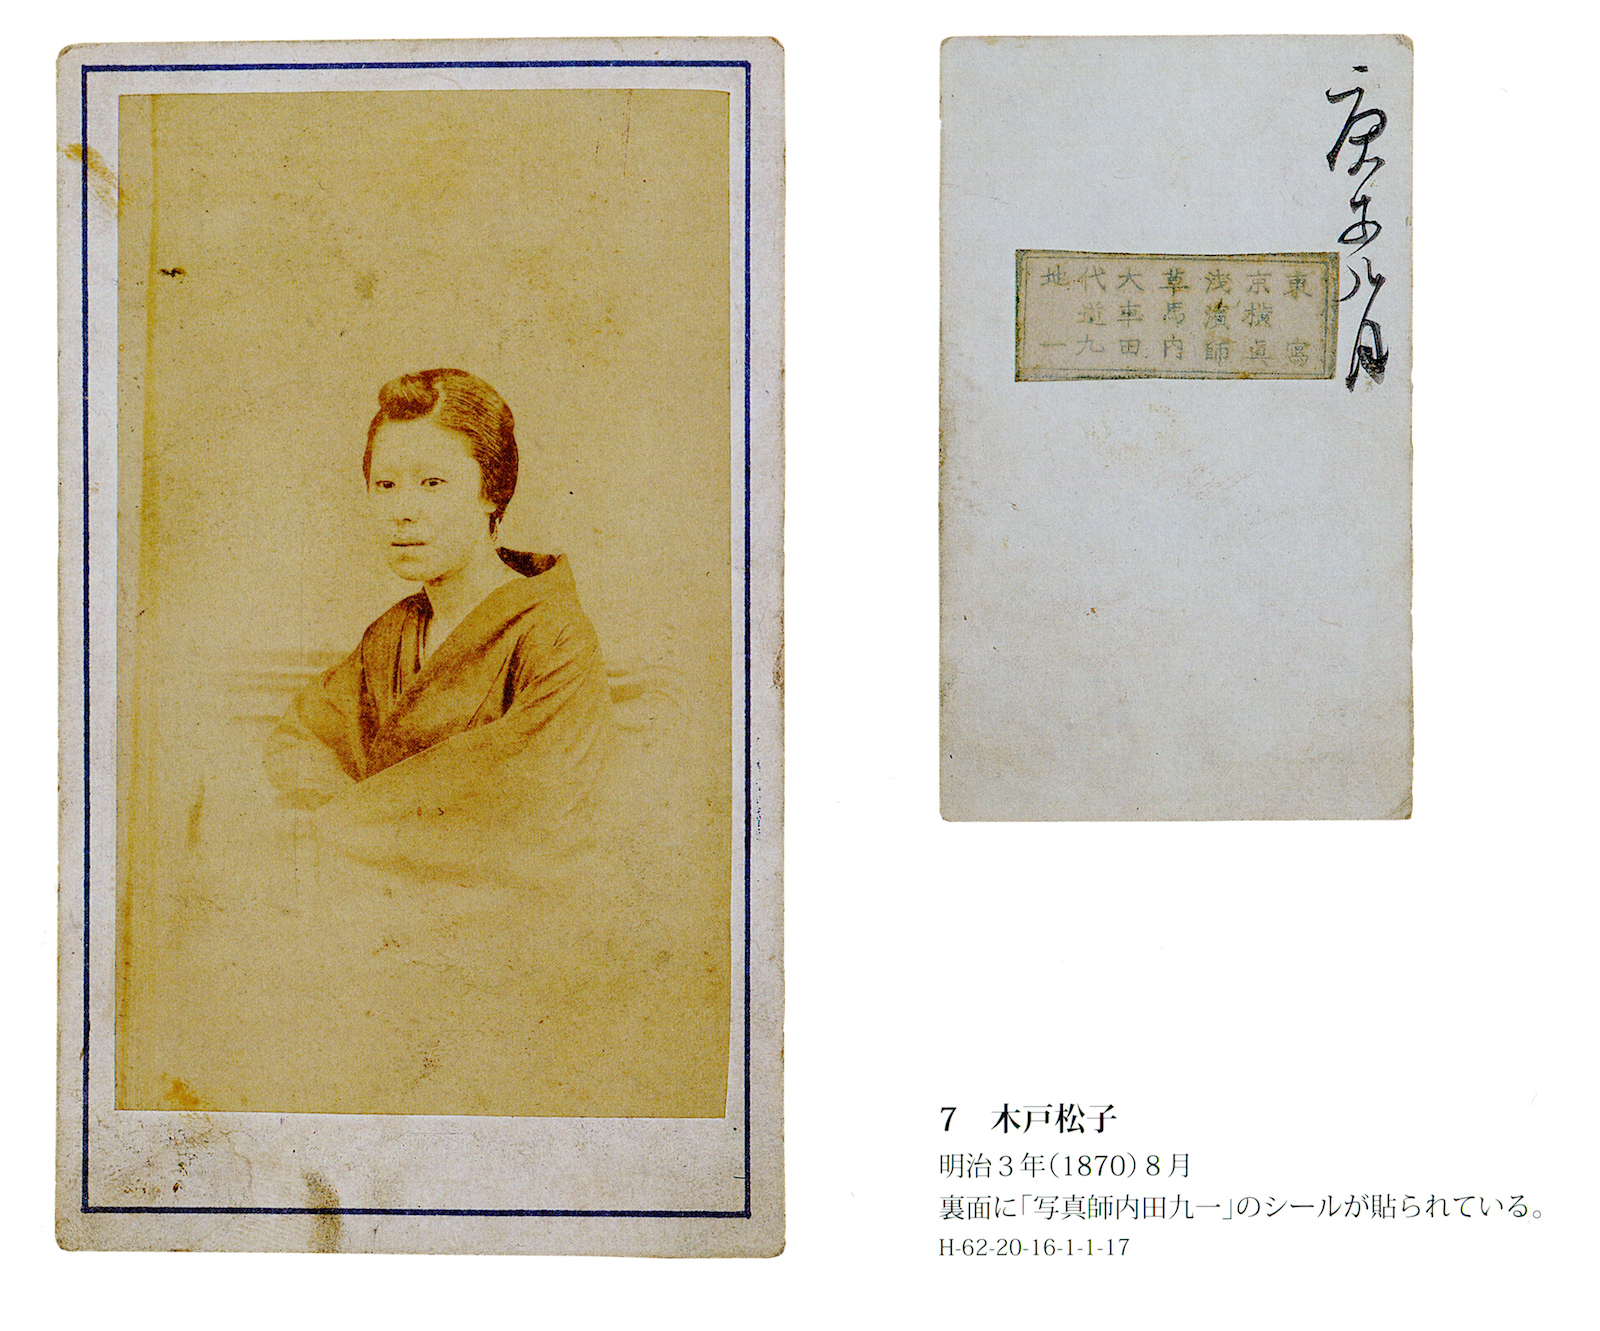 庚午八月
東京浅草大代地
横濱馬車道
寫眞師内田九一
7 木戸松子
明治3年(1870)8月
裏面に「写真師内田九一」のシールが貼られている。
H-62-20-16-1-1-17